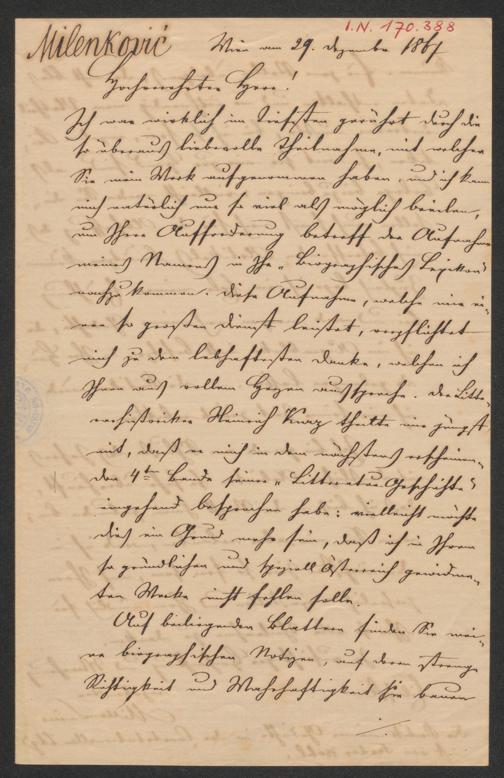 I.N. 170.388
Milenković
Wien am 29. Dezember 1867
Hochverehrter Herr!
Ich war wirklich im Tiefsten gerührt durch die
so überaus liebevolle Theilnahme, mit welcher
Sie mein Werk aufgenommen haben, und ich kann
mich natürlich nur so viel als möglich beeilen,
um Ihrer Aufforderung betreff der Aufnahme
meines Namens in Ihr „Biographisches Lexikon"
nachzukommen. Diese Aufnahme, welche mir ei-
nen so großen Dienst leistet, verpflichtet
mich zu dem lebhaftesten Danke, welchen ich
Ihnen aus vollem Herzen ausspreche. Der Litte-
rarhistoriker Heinrich Kurz theilte mir jüngst
mit, daß er mich in dem nächstens erscheinen-
den 4ten Bande seiner „Litteratur-Geschichte"
eingehend besprochen habe: vielleicht möchte
dies ein Grund mehr sein, daß ich in Ihrem
so gründlichen und speziell Österreich gewidme-
ten Werke nicht fehlen solle.
Auf beiliegenden Blättern finden Sie mei-
ne biographischen Notizen, auf deren strenge
Richtigkeit und Wahrhaftigkeit Sie bauen